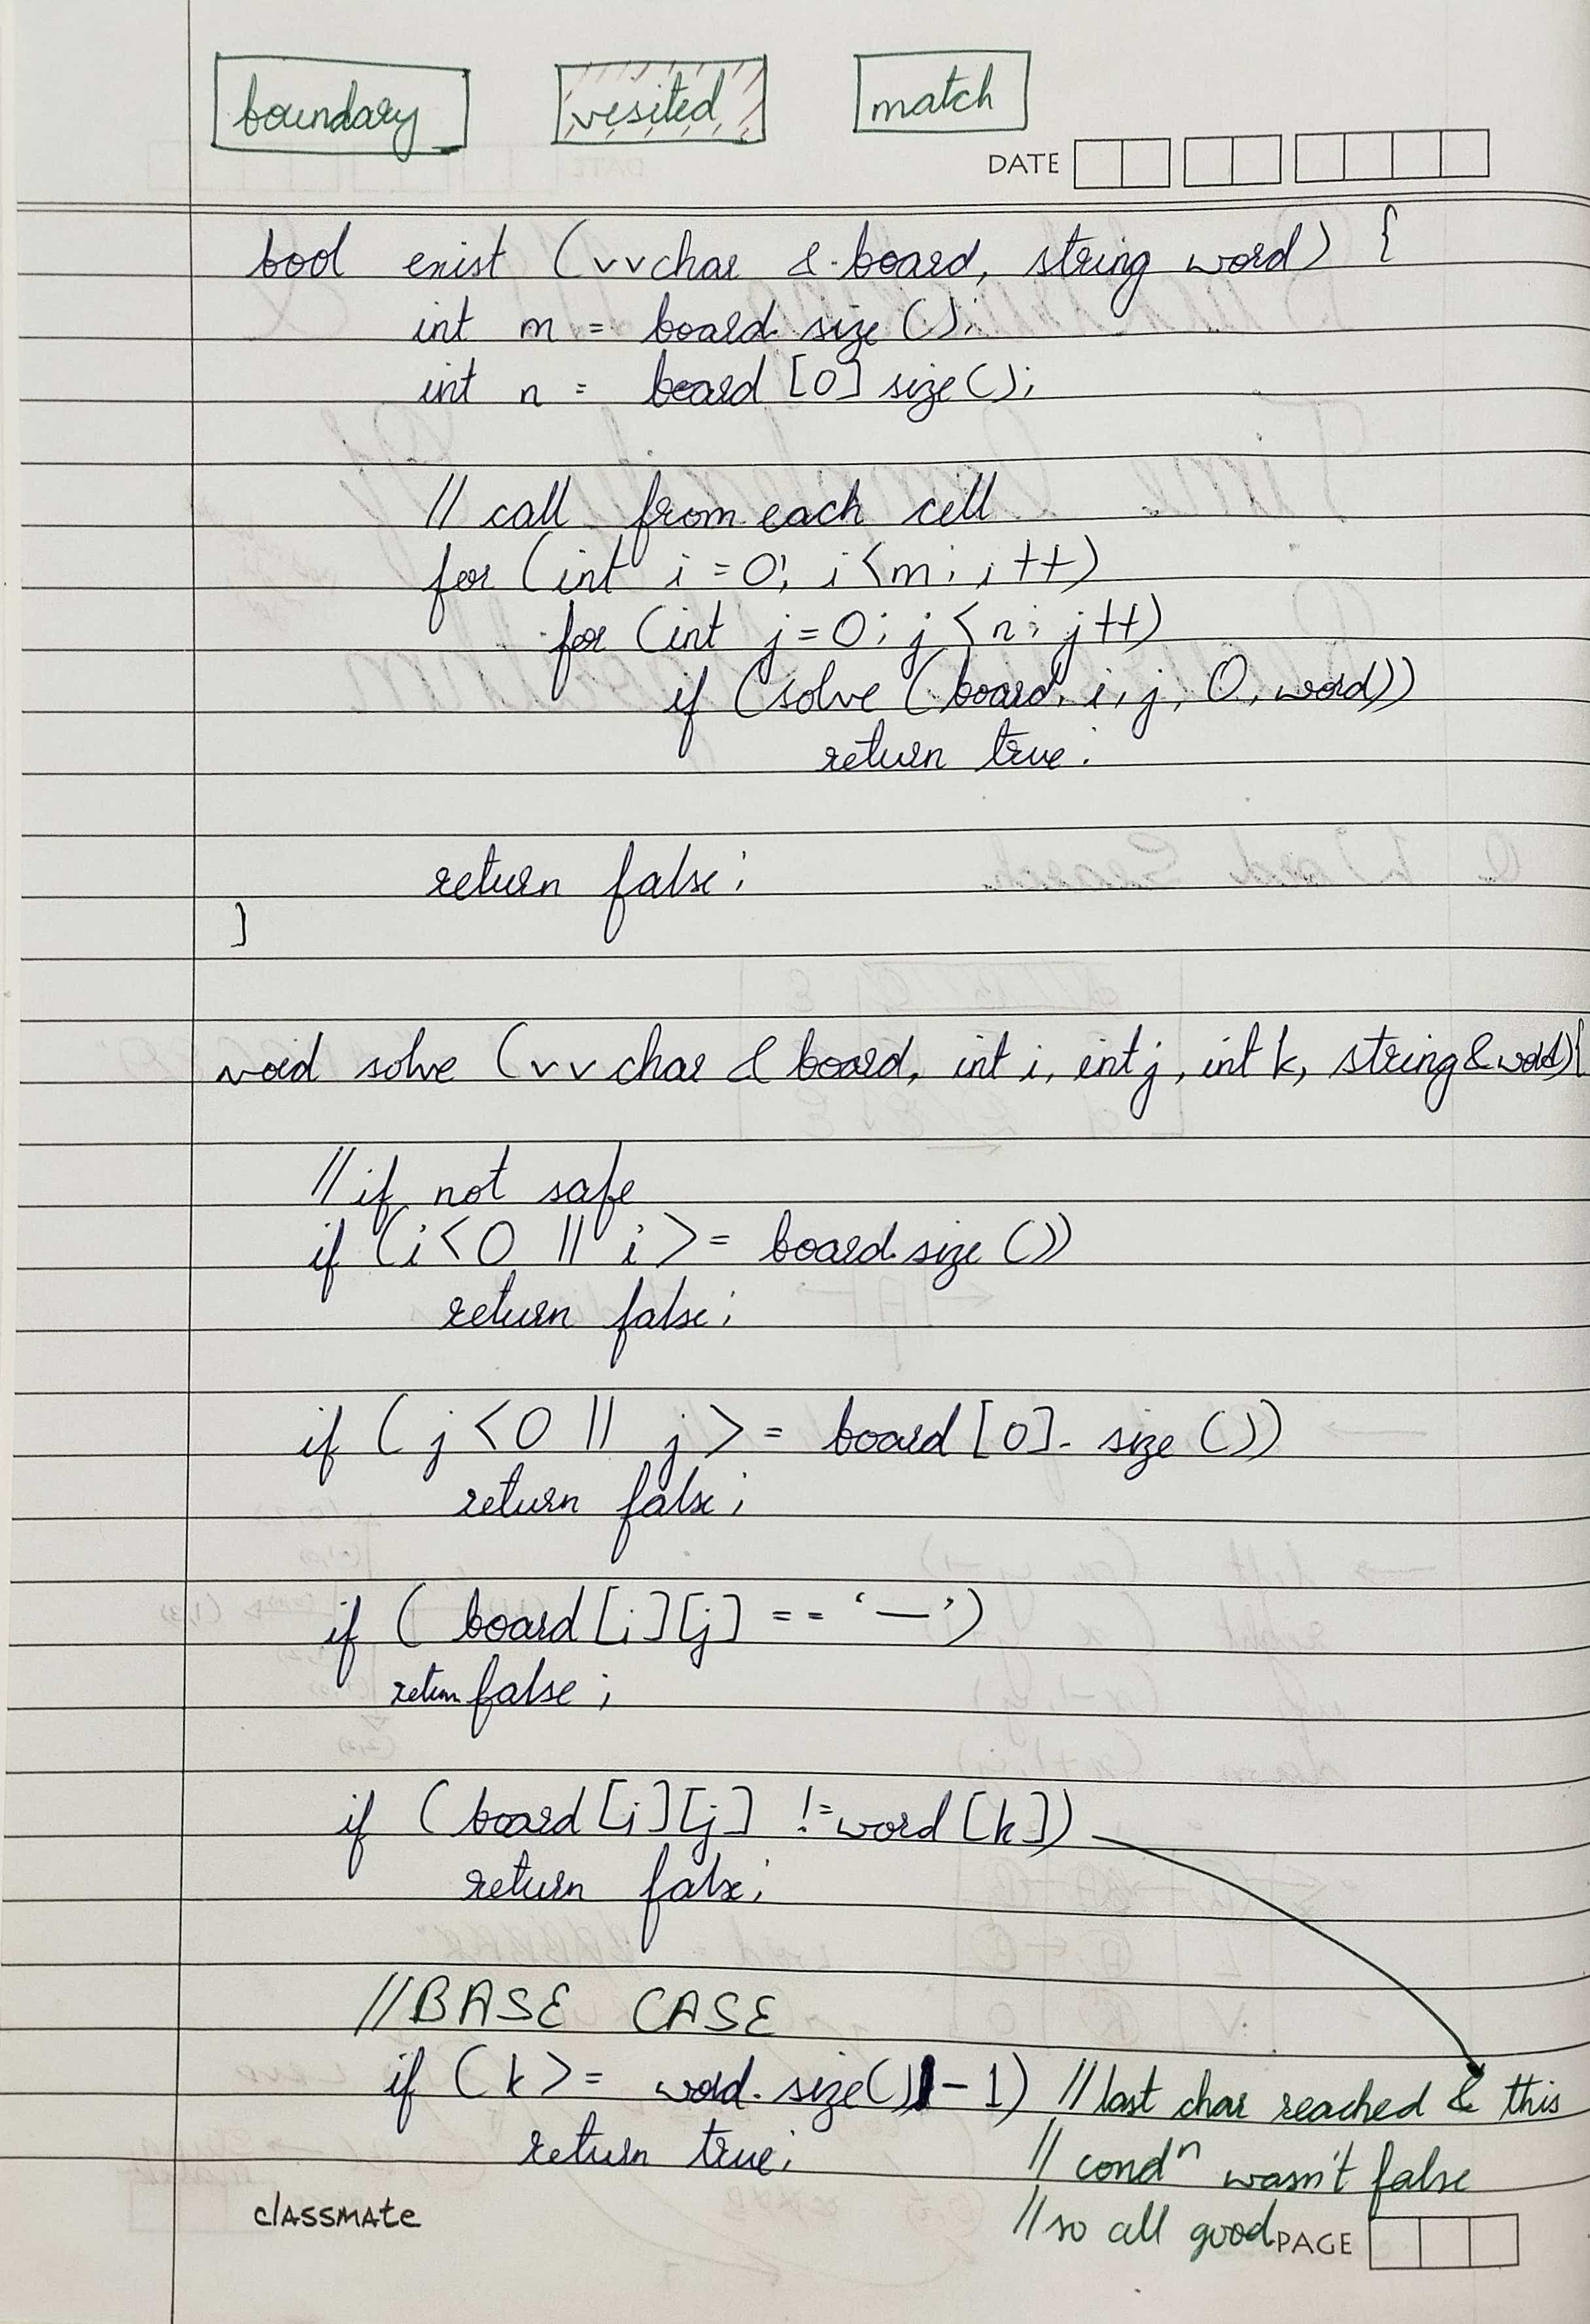 boundary vesited match
DATE
bool exist (vvchar & board, string word) {
int m = board size ();
int n = board [0] size();
// call from each cell
for (int i = 0; i < m; i ++)
for (int j = 0; j < n; j ++)
if (solve (board, i, j, 0, word))
return true;
return false;
}
void solve (vv char & board, int i, int j, int k, string & word){
// if not safe
if (i < 0 || i >= board.size ())
return false;
if ( j < 0 || j >= board [0]. size ())
return false;
if ( board [i][j] == '—')
return false;
if ( board [i][j] != word [k])
return false;
//BASE CASE
if (k >= word. size() - 1) // last char reached & this
return true; // condⁿ wasn't false
classmate // so all good PAGE